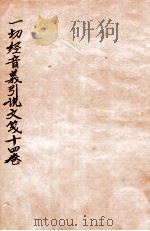 一切經音義引說文箋十四卷